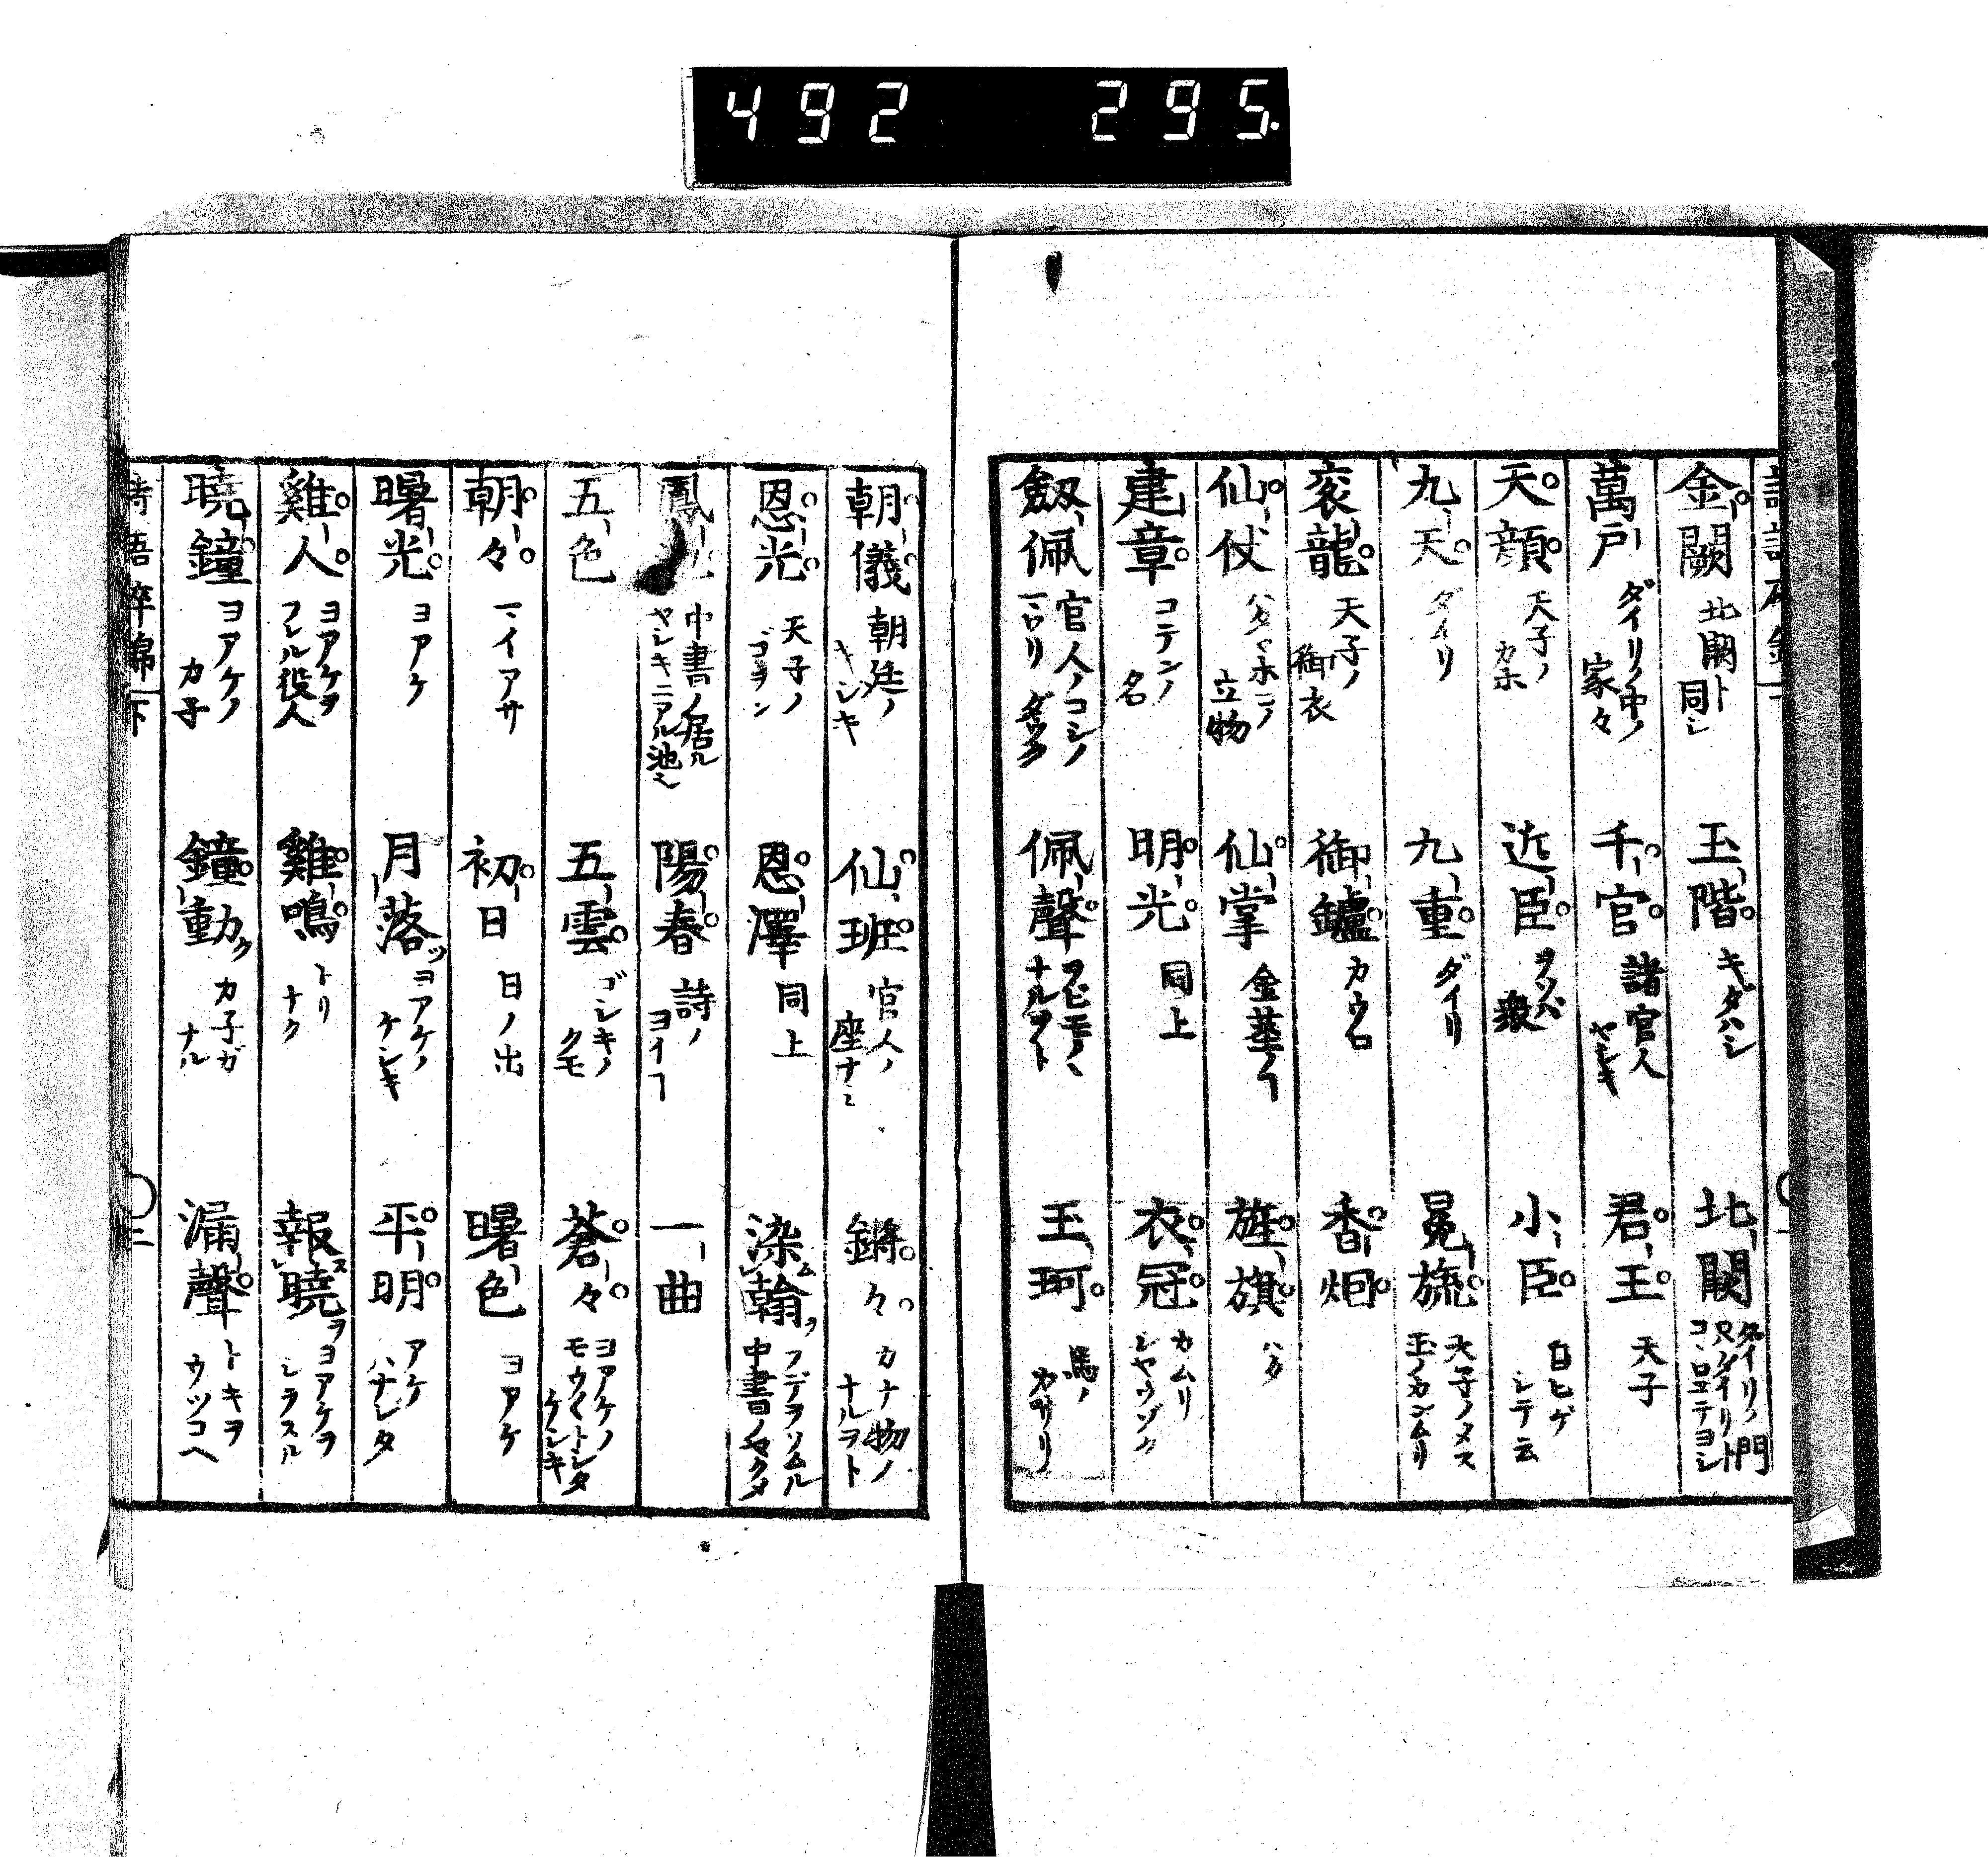 492 295.
金闕 北闕ト同シ 玉階 キダハシ 北闕 ダイリノ門又ダイリトコヽロエテヨシ
萬戸 ダイリノ中ノ家々 千官 諸官人ヤシキ 君王 天子
天顔 天子ノカホ 近臣 ヲソバ衆 小臣 自ヒゲシテ云
九天 ダイリ 九重 ダイリ 冕旒 天子ノメス玉ノカンムリ
袞龍 天子ノ御衣 御鑪 カウロ 香烟
仙仗 立物 仙掌 金莖ノヿ 旌旗 ハタ
建章 コテンノ名 明光 同上 衣冠 カムリシヤウゾク
劔佩 官人ノコシノ 佩聲 ヲビモノヽナルヲト 玉珂 馬ノカザリ
朝儀 朝廷ノギシキ 仙班 官人ノ座ナミ 鏘々 カナ物ノナルヲト
恩光 天子ノゴヲン 恩澤 同上 染翰 フデヲソムル中書ノヤクメ
鳳池 中書ノ居ルヤシキニアル池也 陽春 詩ノヨイヿ 一曲
五色 五雲 ゴシキノクモ 蒼々 ヨアケノモウ〱トシタケシキ
朝々 マイアサ 初日 日ノ出 曙色 ヨアケ
曙光 ヨアケ 月落ツ ヨアケノケシキ 平明 アケハナレタ
雞人 ヨアケヲフレル役人 雞鳴 トリナク 報ス曉ヲ ヨアケヲシラスル
曉鐘 ヨアケノカ子 鐘動ク カ子ガナル 漏聲 トキヲウツコヘ
詩語碎錦 下 三